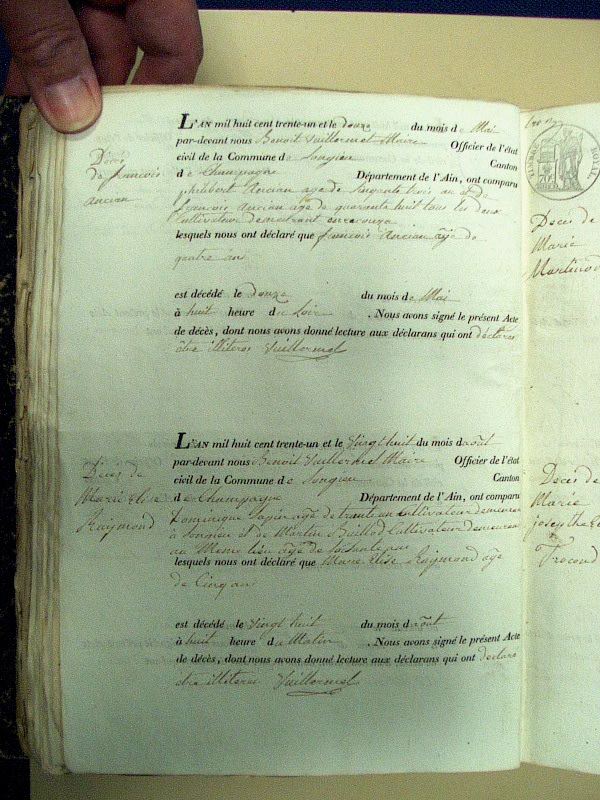 Décé
de françois
ancian
L'AN mil huit cent trente-un et le douze du mois de Mai
par-devant nous Benoit Vuillermet Maire Officier de l'état
civil de la Commune de Songieu Canton
de Champagne Département de l'Ain, ont comparu
philibert Ancian age de Soixante trois ans et de
françois Ancian age de quarante huit tous les deux
Cultivateur demeurant
lesquels nous ont déclaré que françois Ancian âgé de
quatre ans
est décédé le douze du mois de Mai
à huit heure du Soir . Nous avons signé le présent Acte
de décès, dont nous avons donné lecture aux déclarans qui ont déclarés
être illiteres Vuillermet
Déces de
Marie Elise
Raymond
L'AN mil huit cent trente-un et le Vingt huit du mois daout
par-devant nous Benoit Vuillermet Maire Officier de l'état
civil de la Commune de Songieu Canton
de Champagne Département de l'Ain, ont comparu
Dominique age de trent un Cultivateur demeurant
à Songieu et de Martin Billod Cultivateur demeurant
au Meme lieu agé de
lesquels nous ont déclaré que Marie Elise Raymond age
de Cinq ans
est décédé le Vingt huit du mois daout
à huit heure du Matin . Nous avons signé le présent Acte
de décès, dont nous avons donné lecture aux déclarans qui ont declare
etre illiteres Vuillermet
TIMBRE ROYAL
Deces de
Marie
Martinod
Deces de
Marie
josephte
Trocond